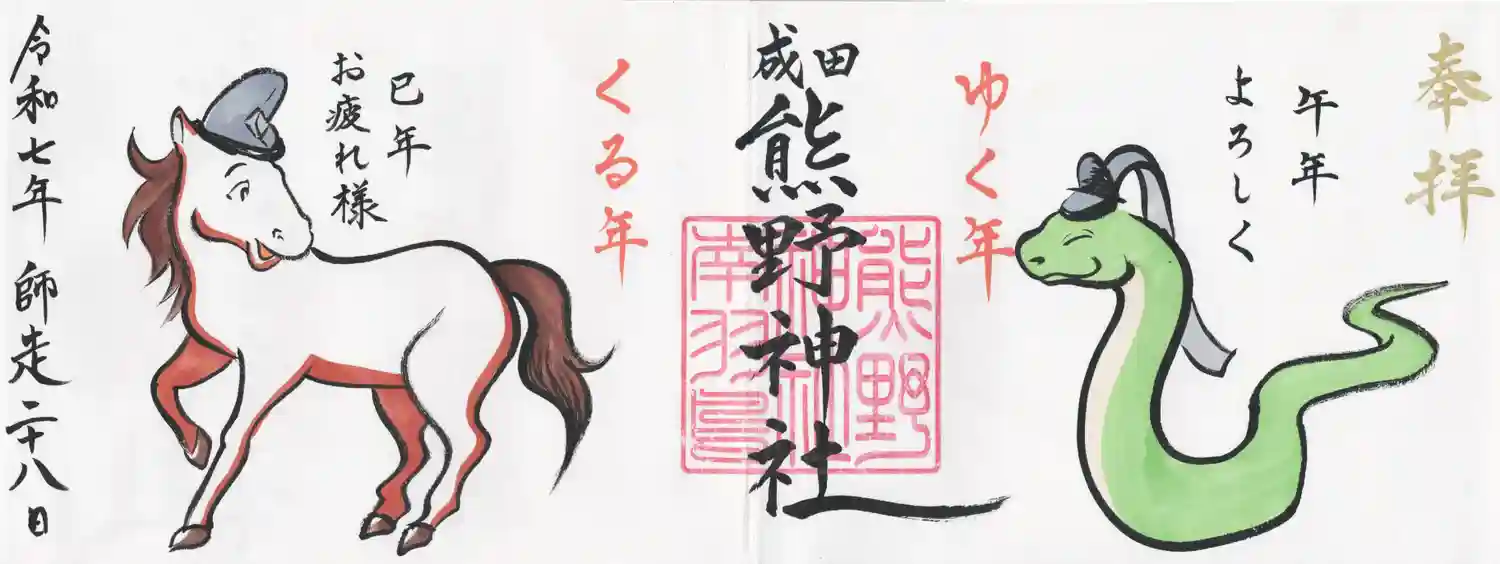 奉拝
午年
よろしく
ゆく年
成田
熊野神社
熊野
神社
南羽鳥
くる年
巳年
お疲れ様
令和七年 師走二十八日